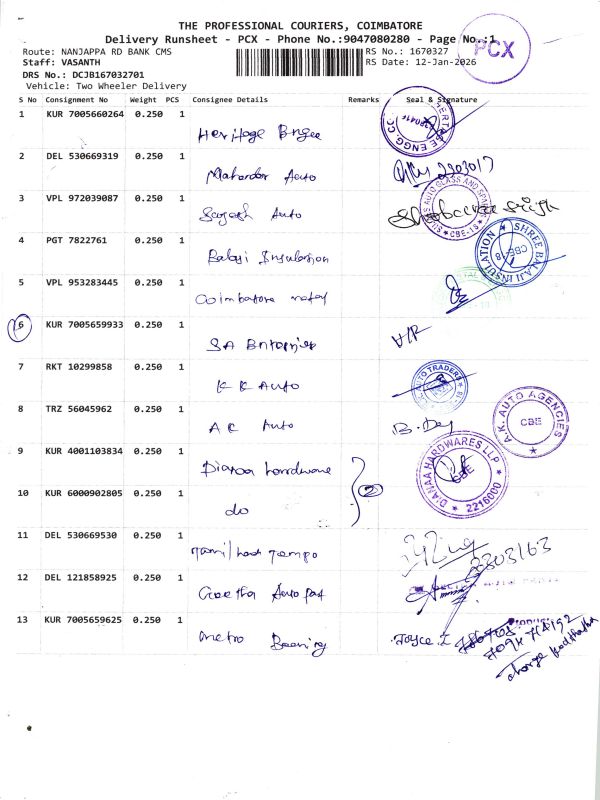 THE PROFESSIONAL COURIERS, COIMBATORE
Delivery Runsheet - PCX - Phone No.:9047080280 - Page No.:1
PCX
Route: NANJAPPA RD BANK CMS
RS No.: 1670327
Staff: VASANTH
RS Date: 12-Jan-2026
DRS No.: DCJB167032701
Vehicle: Two Wheeler Delivery
S No Consignment No Weight PCS Consignee Details Remarks Seal & Signature
1 KUR 7005660264 0.250 1
Heritage Engee
2 DEL 530669319 0.250 1
Auto
3 VPL 972039087 0.250 1
Auto
4 PGT 7822761 0.250 1
Balaji Insulation
SHREE BALAJI INSULATION CBE-18
5 VPL 953283445 0.250 1
Coimbatore
6 KUR 7005659933 0.250 1
SA
7 RKT 10299858 0.250 1
K K Auto
AUTO TRADERS
8 TRZ 56045962 0.250 1
A K Auto
A.K. AUTO AGENCIES CBE
9 KUR 4001103834 0.250 1
Dianaa hardware
DIANAA HARDWARES LLP CBE 2216000
10 KUR 6000902805 0.250 1
do
2
11 DEL 530669530 0.250 1
Tamilnadu Tempo
12 DEL 121858925 0.250 1
Geetha Auto Part
13 KUR 7005659625 0.250 1
Metro Bearing
Joyce.I